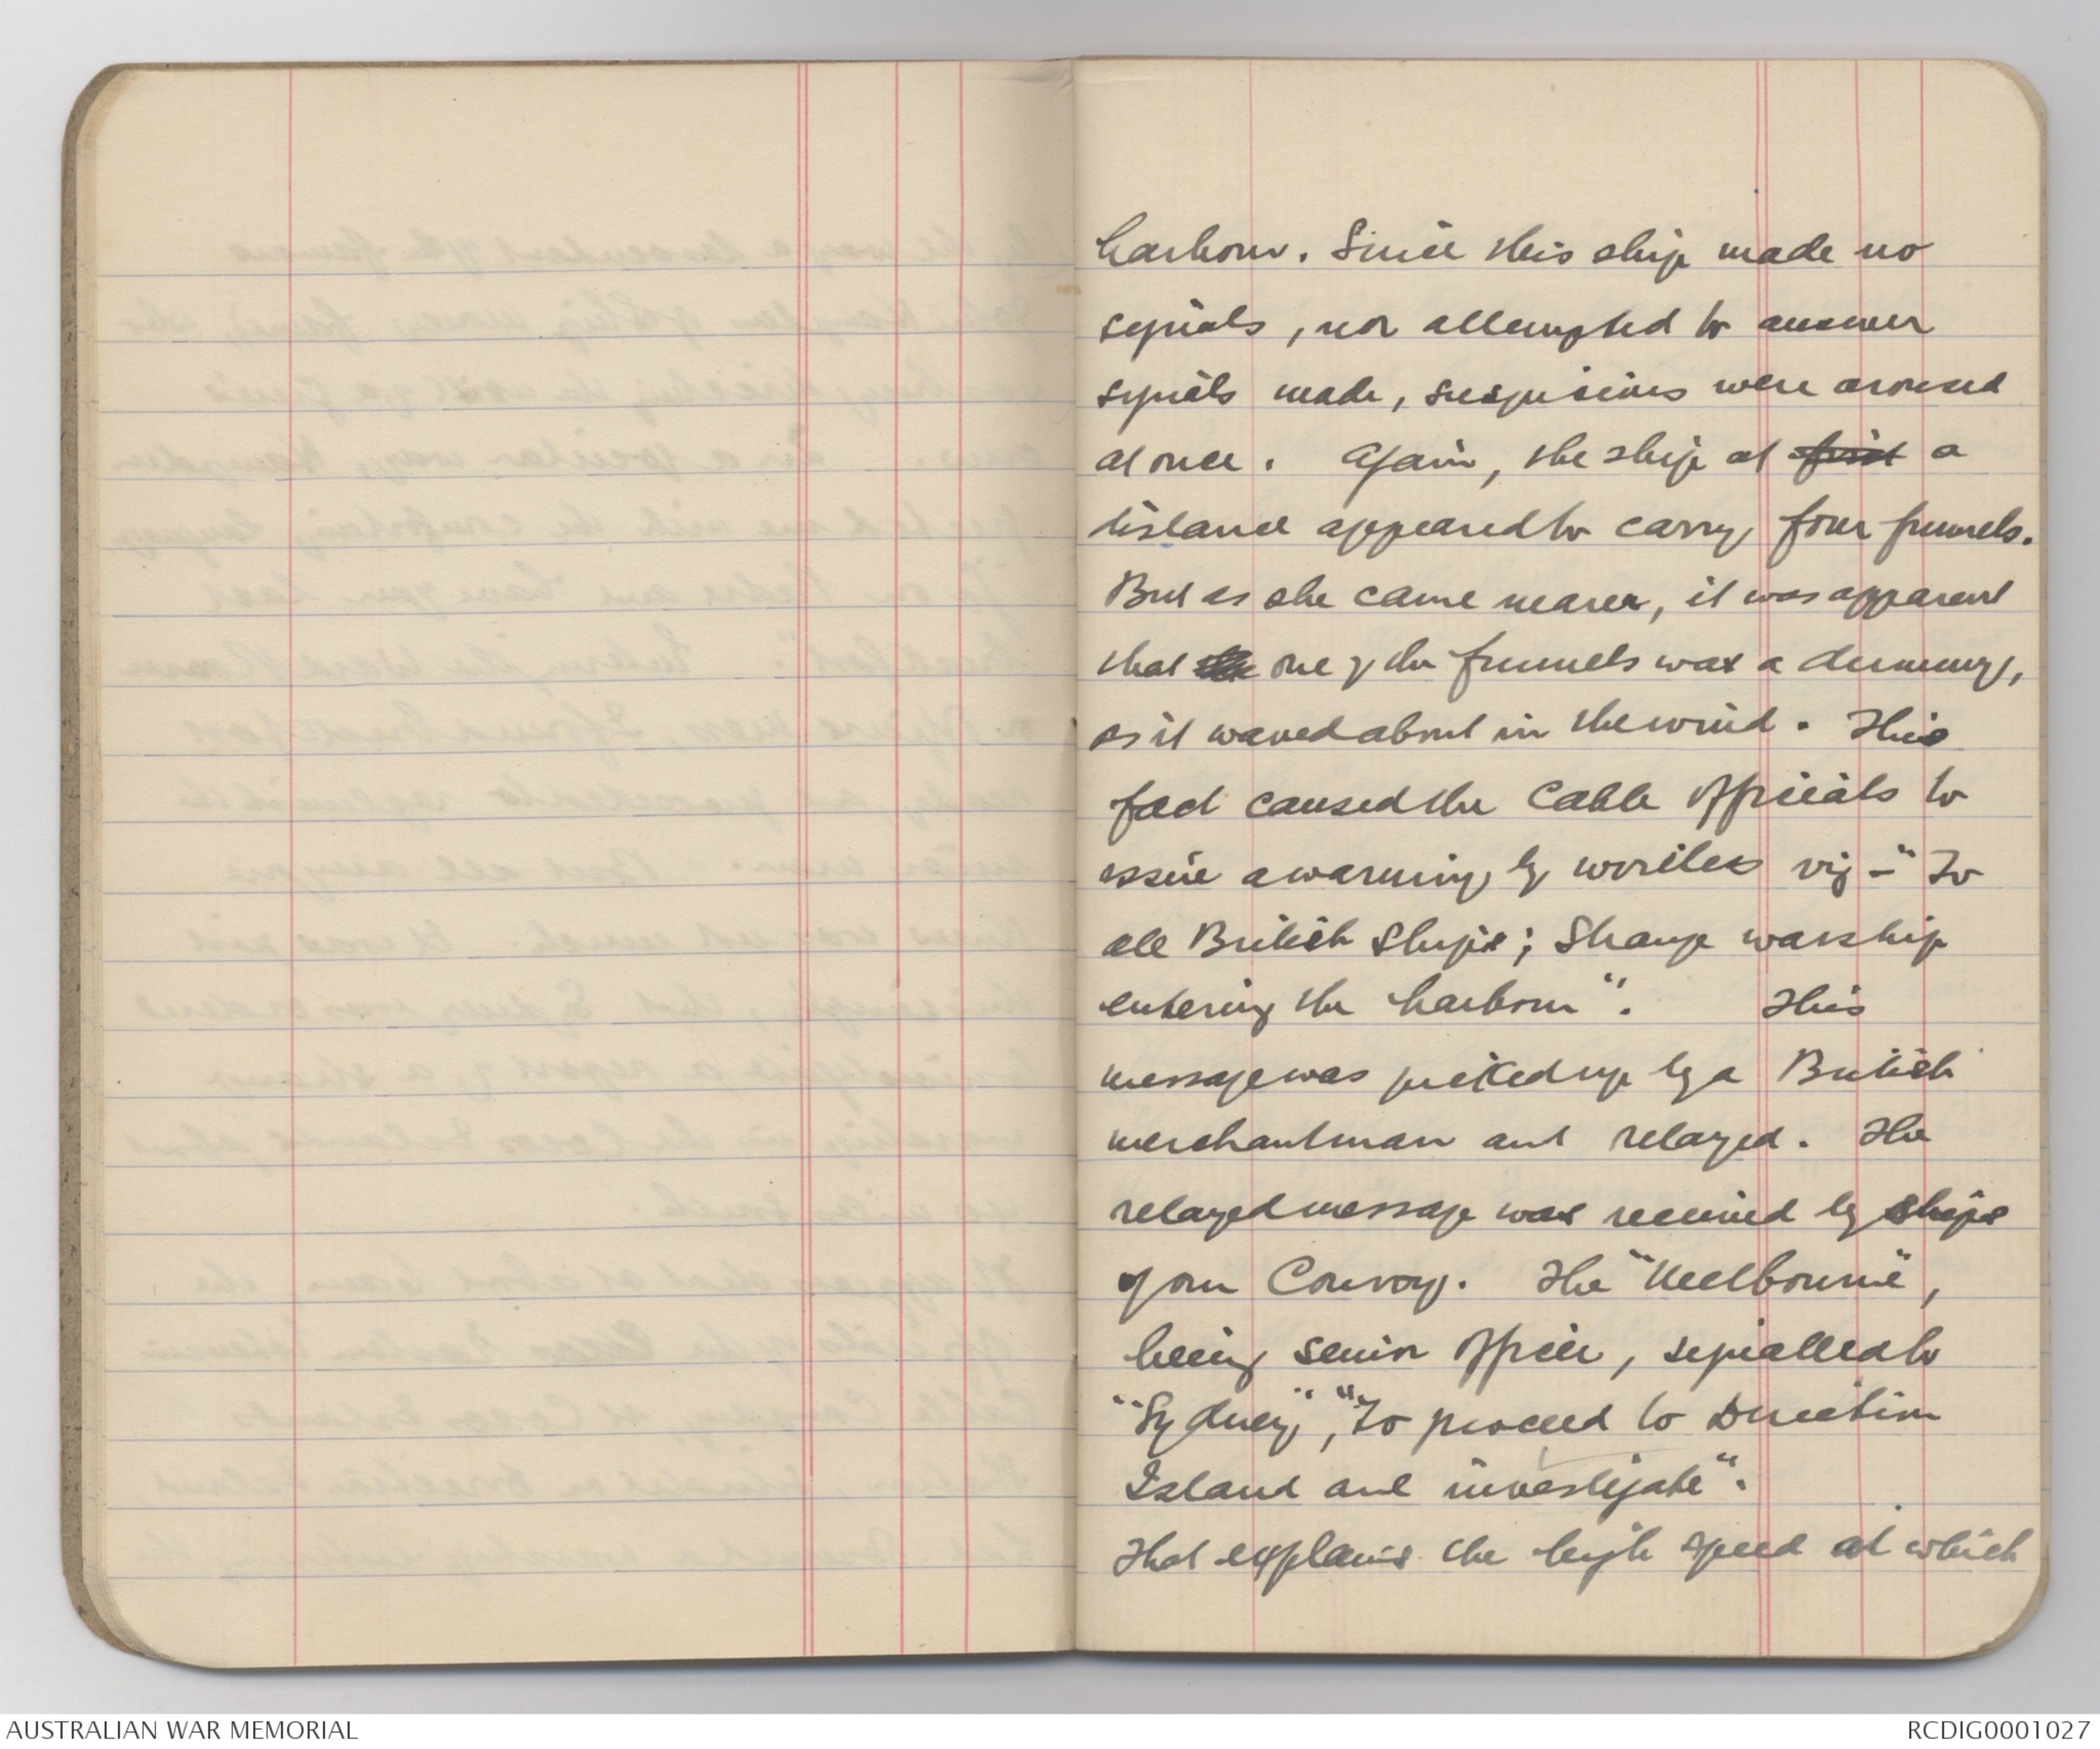 harbour. Since this ship made no
signals, nor attempted to answer
signals made, suspicions were aroused
at once. Again, the ship at first a
distance appeared to carry four funnels.
But as she came nearer, it was apparent
that the one of the funnels was a dummy,
as it waved about in the wind. This
fact caused the Cable Officials to
issue a warning by wireless viz - "To
all British Ships; Strange warship
entering the harbour". This
message was picked up by a British
merchantman and relayed. The
relayed message was received by ships
of our Convoy. The "Melbourne",
being senior officer, signalled to
"Sydney", "To proceed to Direction
Island and investigate".
That explains the high speed at which
AUSTRALIAN WAR MEMORIAL
RCDIG0001027